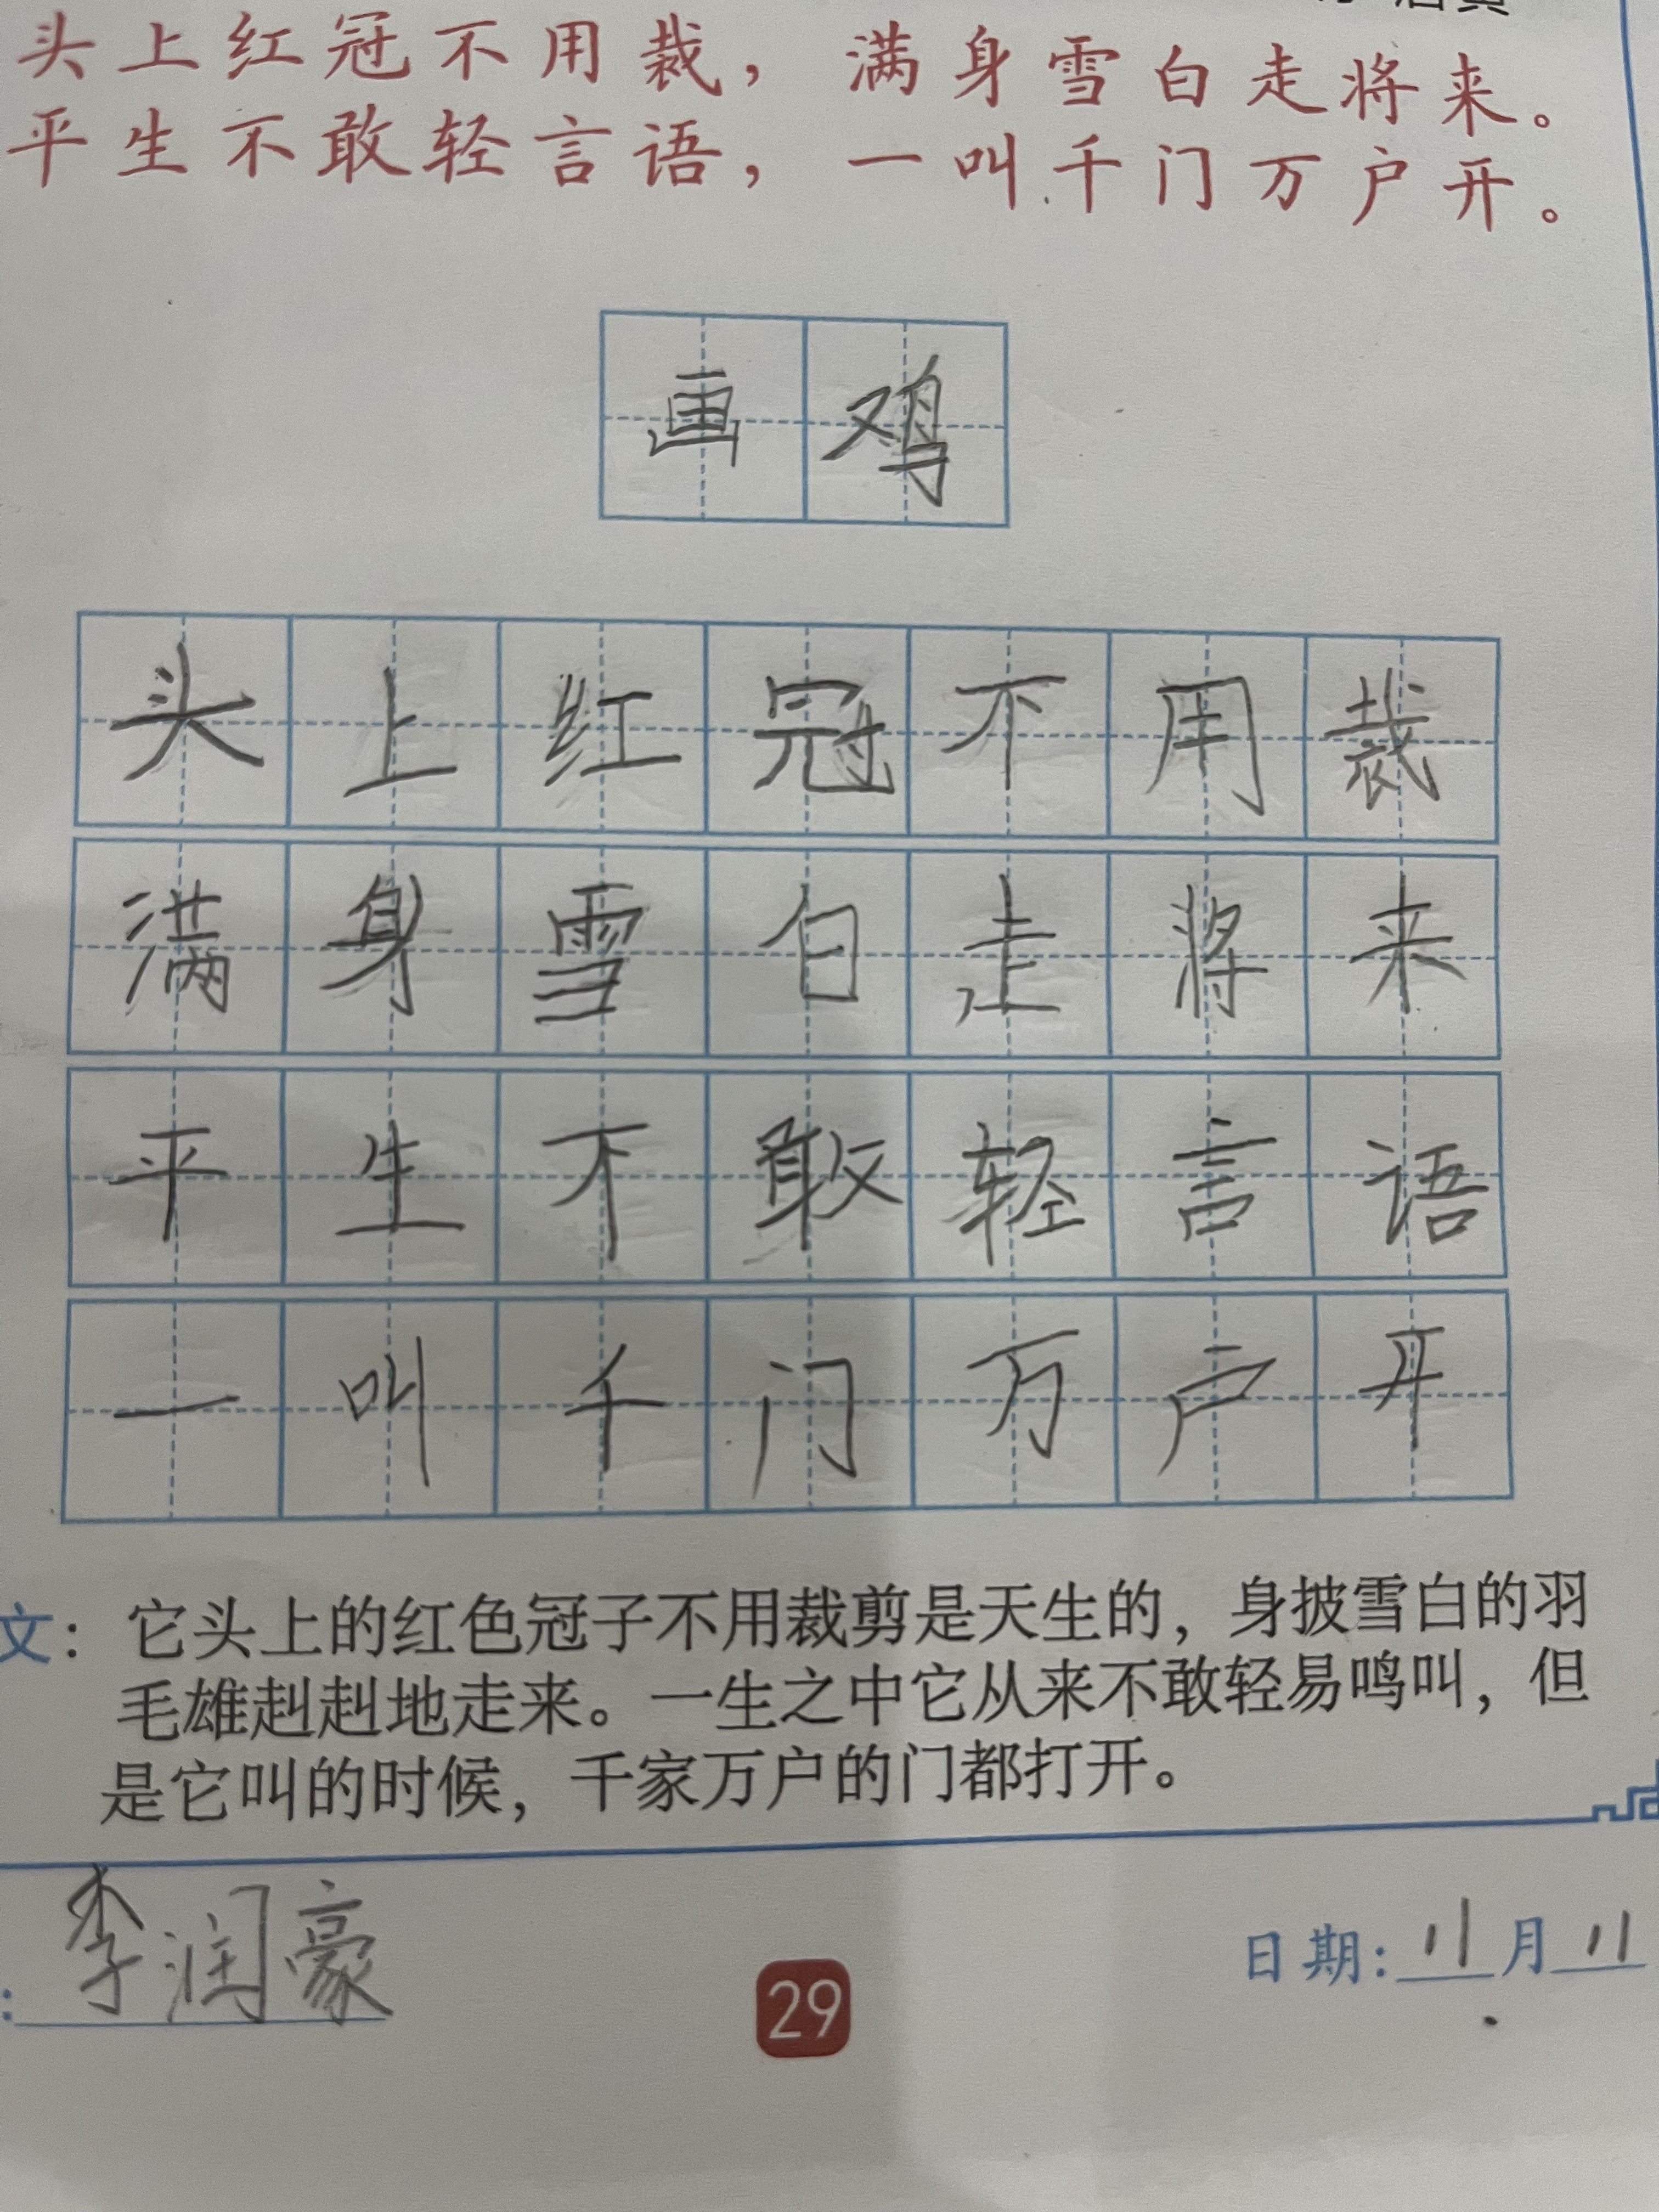 头上红冠不用裁，满身雪白走将来。
平生不敢轻言语，一叫千门万户开。
画鸡
头上红冠不用裁
满身雪白走将来
平生不敢轻言语
一叫千门万户开
文：它头上的红色冠子不用裁剪是天生的，身披雪白的羽
毛雄赳赳地走来。一生之中它从来不敢轻易鸣叫，但
是它叫的时候，千家万户的门都打开。
：李润豪
29
日期：11月11